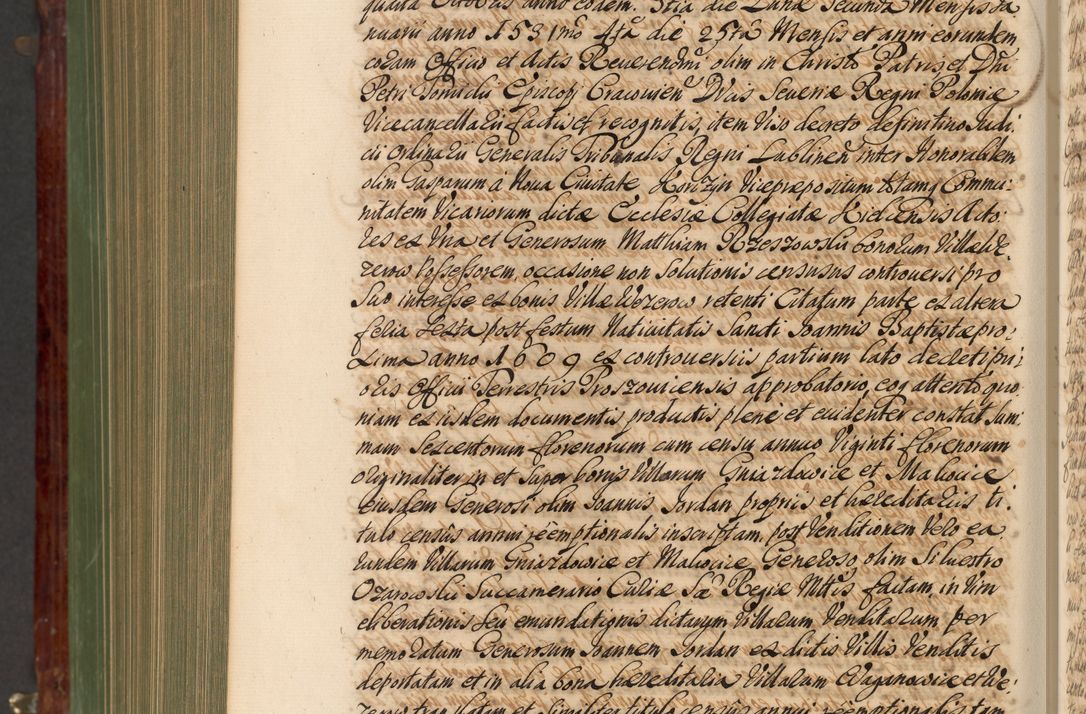 quarta Octobris anno eodem. 3tia die Lunæ secunda Mensis Ja
nuarii anno 1531mo 4ta die 25ta Mensis et anni eorundem
coram Officio et Actis Reverendmi olim in Christo Patris et Dni
Petri Tomicki Episcopi Cracovien Ducis Severiæ Regni Poloniæ
Vicecancellarii factis et recognitis, item Viso decreto definitivo Judi:
cii Ordinarii Generalis Tribunalis Regni Lublinen inter Honorabilem
olim Gasparum à Nova Civitate Korczyn Vicepræpositum totamq Commu:
nitatem Vicariorum dictæ Ecclesiæ Collegiatæ Kielciensis Acto:
res ex Una et Generosum Mathiam Rzeszowski bonorum Villæ We:
zerow Possessorem, occasione non Solutionis censusus controversi pro
Suo interesse ex bonis Villæ Wezerow retenti Citatum parte ex altera
feria Sexta post festum Nativitatis Sancti Joannis Baptistæ pro:
xima anno 1609 ex controversiis partium lato decreti pri:
oris Officii Terrestris Proszoviciensis approbatorio, eoq attento, quo:
niam ex iisdem documentis productis plene et evidenter constat Sum:
mam Sexcentorum florenorum cum censu annuo Viginti florenorum
originaliter in et Super bonis Villarum Gniazdowice et Makocice
Eiusdem Generosi olim Joannis Jordan propriis et hæreditariis ti:
tulo censûs annui réemptionalis inscriptam, post Venditionem Vero ea
rundem Villarum Gniazdowice et Makocice Generoso olim Silvestro
Ozarowski Succamerario Curiæ Sæ Regiæ Mttis factam, in Vim
eliberationis seu emundationis dictarum Villarum Venditarum per
memoratum Generosum Joannem Jordan ex dictis Villis Venditis
deportatam et in alia bona hæreditalia Villarum Waganowice et We:
zerow translatam et similiter titulo censûs annui réemptionalis tam